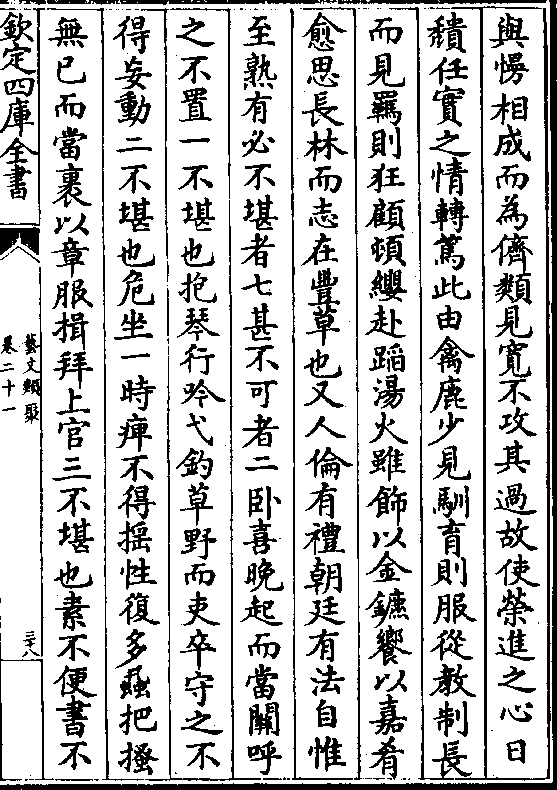 與慢相成而為儕類見寛不攻其過故使榮進之心日
穨任實之情轉篤此由禽鹿少見馴育則服從教制長
而見羈則狂顧頓纓赴蹈湯火雖飾以金鑣饗以嘉肴
愈思長林而志在豐草也又人倫有禮朝廷有法自惟
至熟有必不堪者七甚不可者二卧喜晚起而當關呼
之不置一不堪也抱琴行吟弋釣草野而吏卒守之不
得妄動二不堪也危坐一時痺不得揺性復多蝨把搔
無已而當裹以章服揖拜上官三不堪也素不便書不
欽定四庫全書
藝文類聚
卷二十一
三十八